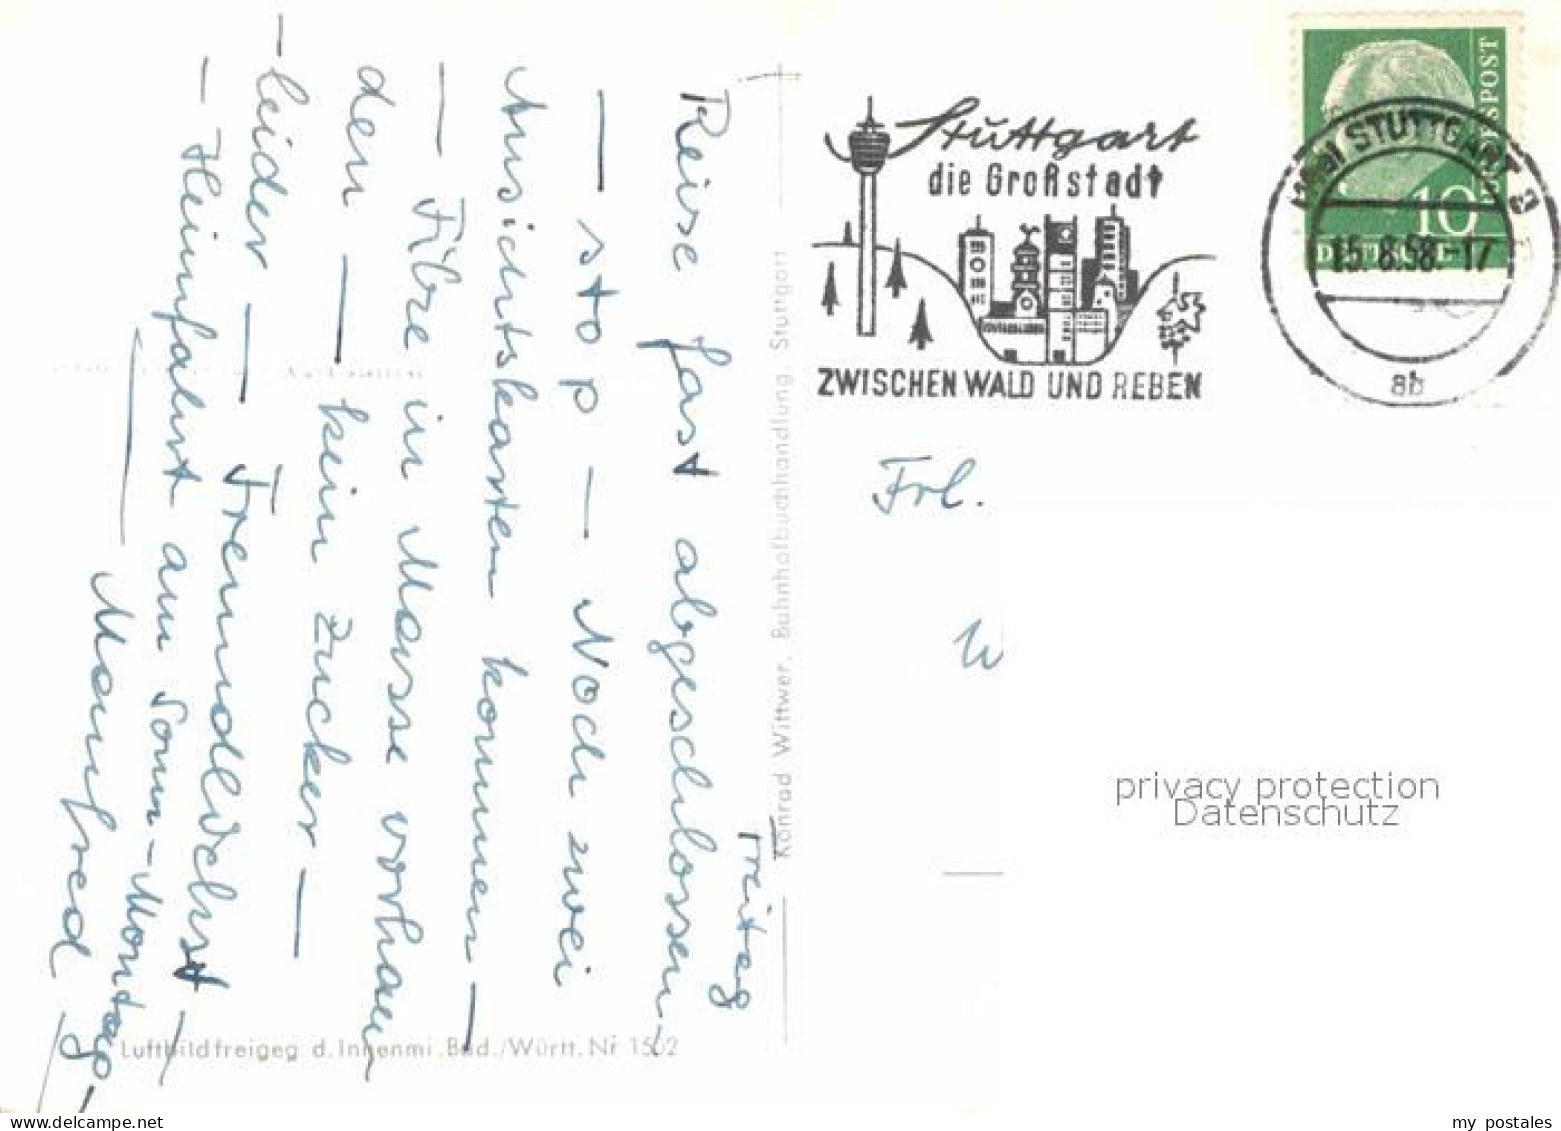 Freitag
Reise fast abgeschlossen -
- stop - Noch zwei
Ansichtskarten kommen -
- Filme in Masse vorhan
den - kein Zucker -
- leider - Fremdlichst
- Heimfahrt am Sonn-Montag -
Manfred
Luftbild freigeg d. Innenmi.Bad./Württ. Nr 1502
Konrad Wittwer, Bahnhofbuchhandlung, Stuttgart
Stuttgart
die Großstadt
ZWISCHEN WALD UND REBEN
STUTTGART 3
15.8.58.-17
ab
10
Frl.
W
privacy protection
Datenschutz
my postales